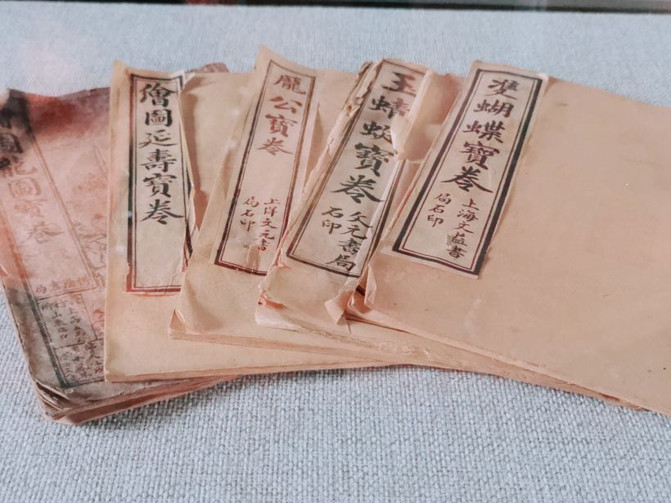 雙蝴蝶寶卷
上海文益書
局石印
玉蜻蜓寶卷
文元書局
石印
龐公寶卷
上洋文元書
局石印
繪圖延壽寶卷
繪圖龍圖寶卷